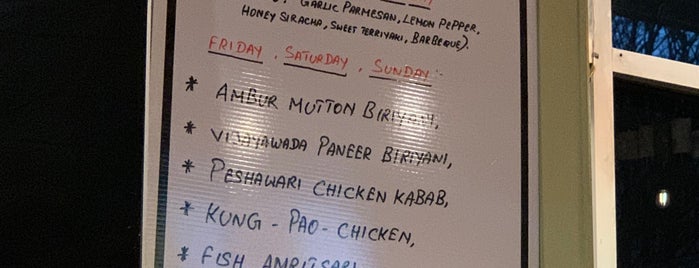 GARLIC PARMESAN, LEMON PEPPER,
HONEY SIRACHA, SWEET TERRIYAKI, BARBEQUE).
FRIDAY, SATURDAY, SUNDAY :-
* AMBUR MUTTON BIRIYANI,
* VIJAYAWADA PANEER BIRIYANI,
* PESHAWARI CHICKEN KABAB,
* KUNG - PAO - CHICKEN,
* FISH AMRITSARI